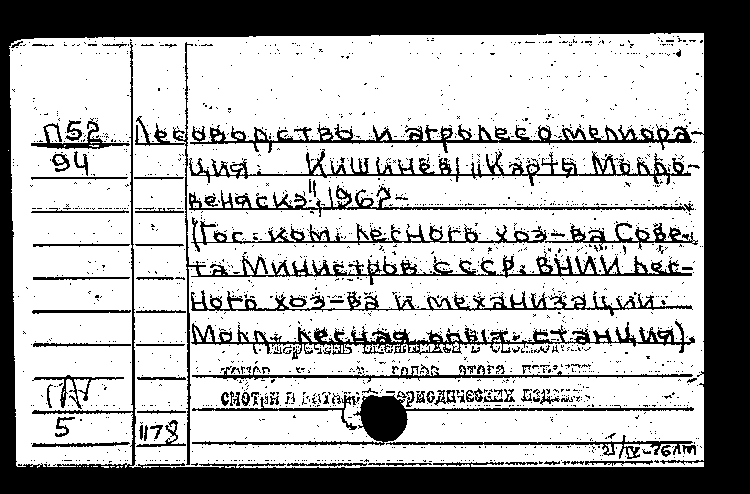 П52
94
Лесоводство и агролесомелиора-
ция. Кишинев, "Картя Молдо-
веняскэ", 1967-
(Гос. ком. лесного хоз-ва Сове-
та Министров СССР. ВНИИ лес-
ного хоз-ва и механизации.
Молд. лесная опыт. станция).
(Перечень имеющихся в библиотеке
томов, и годов этого издания
смотри в каталоге периодических изданий
5
1178